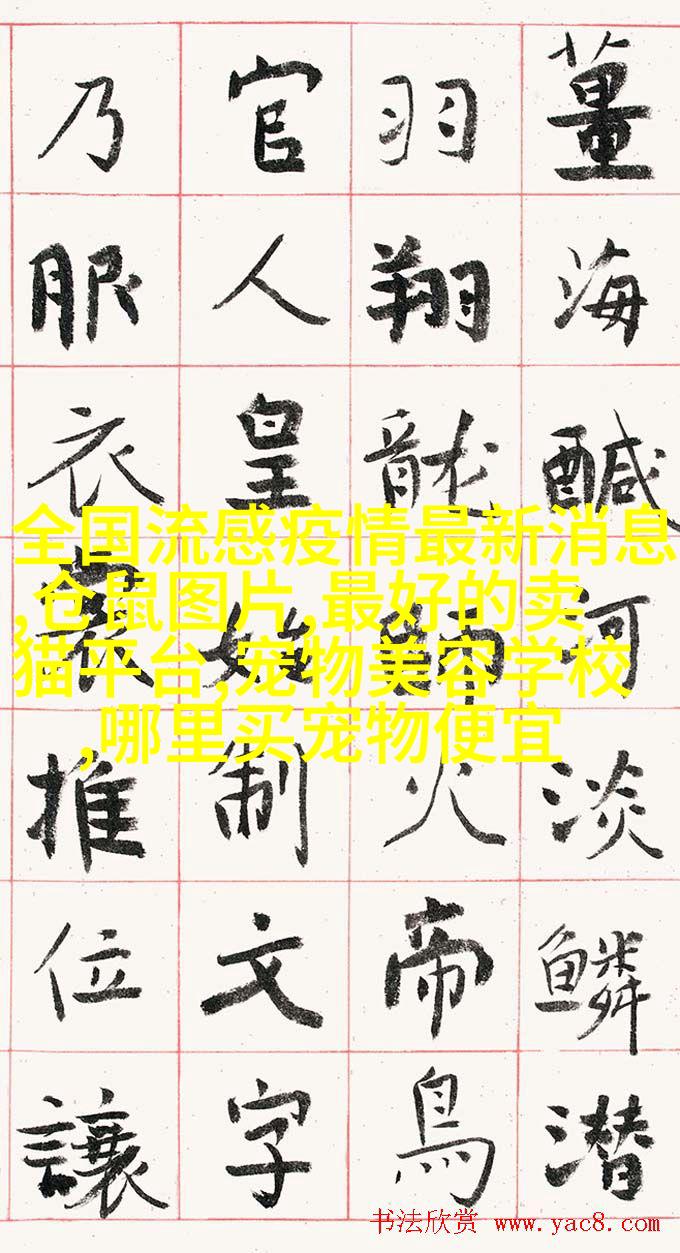 薑海醎河淡鱗潜
羽翔龍師火帝鳥
官人皇始制文字
乃服衣裳推位讓
全国流感疫情最新消息
,仓鼠图片,最好的卖
猫平台,宠物美容学校
,哪里买宠物便宜
书法欣赏 www.yac8.com